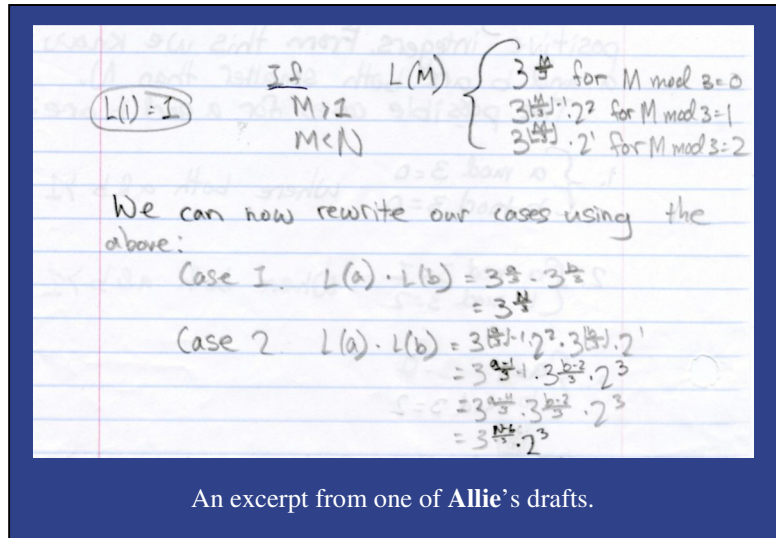 If L(M) { 3^(M/3) for M mod 3=0
L(1)=1 M>1 3^(⌊M/3⌋-1)·2² for M mod 3=1
M<N 3^⌊M/3⌋·2¹ for M mod 3=2
We can now rewrite our cases using the
above:
Case 1. L(a)·L(b) = 3^(a/3)·3^(b/3)
= 3^(N/3)
Case 2. L(a)·L(b) = 3^(⌊a/3⌋-1)·2²·3^⌊b/3⌋·2¹
= 3^((a-1)/3-1)·3^((b-2)/3)·2³
= 3^((a-4)/3)·3^((b-2)/3)·2³
= 3^((N-6)/3)·2³
An excerpt from one of Allie's drafts.